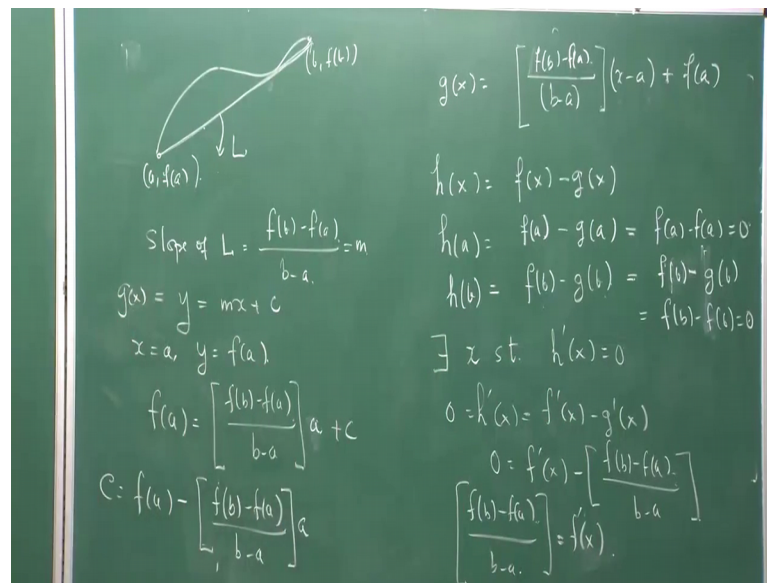 (b, f(b))
L
(a, f(a))
Slope of L = \frac{f(b)-f(a)}{b-a} = m
g(x) = y = mx + c
x=a, y = f(a)
f(a) = [\frac{f(b)-f(a)}{b-a}] a + c
C = f(a) - [\frac{f(b)-f(a)}{b-a}] a
g(x) = [\frac{f(b)-f(a)}{(b-a)}] (x-a) + f(a)
h(x) = f(x) - g(x)
h(a) = f(a) - g(a) = f(a) - f(a) = 0
h(b) = f(b) - g(b) = f(b) - g(b)
= f(b) - f(b) = 0
∃ x st. h'(x) = 0
0 = h'(x) = f'(x) - g'(x)
0 = f'(x) - [\frac{f(b)-f(a)}{b-a}]
[\frac{f(b)-f(a)}{b-a}] = f'(x).